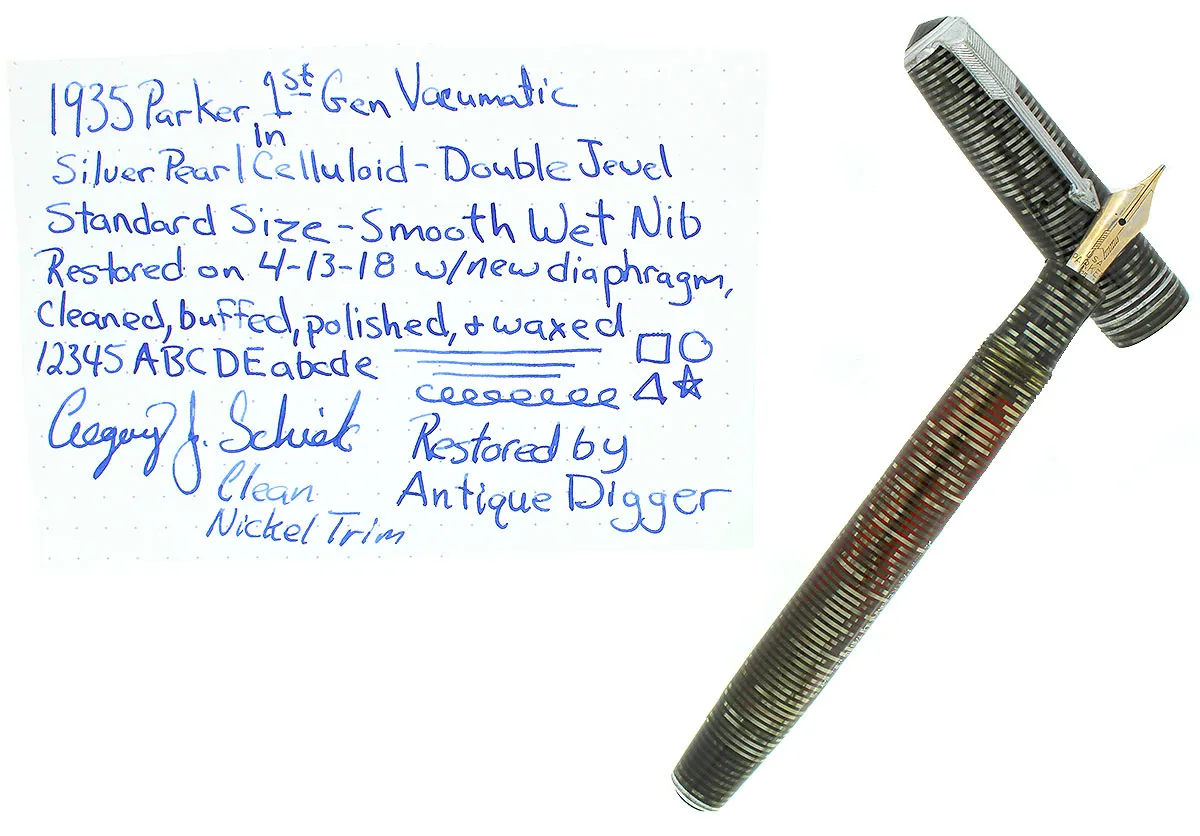 1935 Parker 1st Gen Vacumatic
in
Silver Pearl Celluloid - Double Jewel
Standard Size - Smooth Wet Nib
Restored on 4-13-18 w/new diaphragm,
cleaned, buffed, polished, & waxed
12345 ABCDE abcde
Restored by
Clean
Antique Digger
Nickel Trim